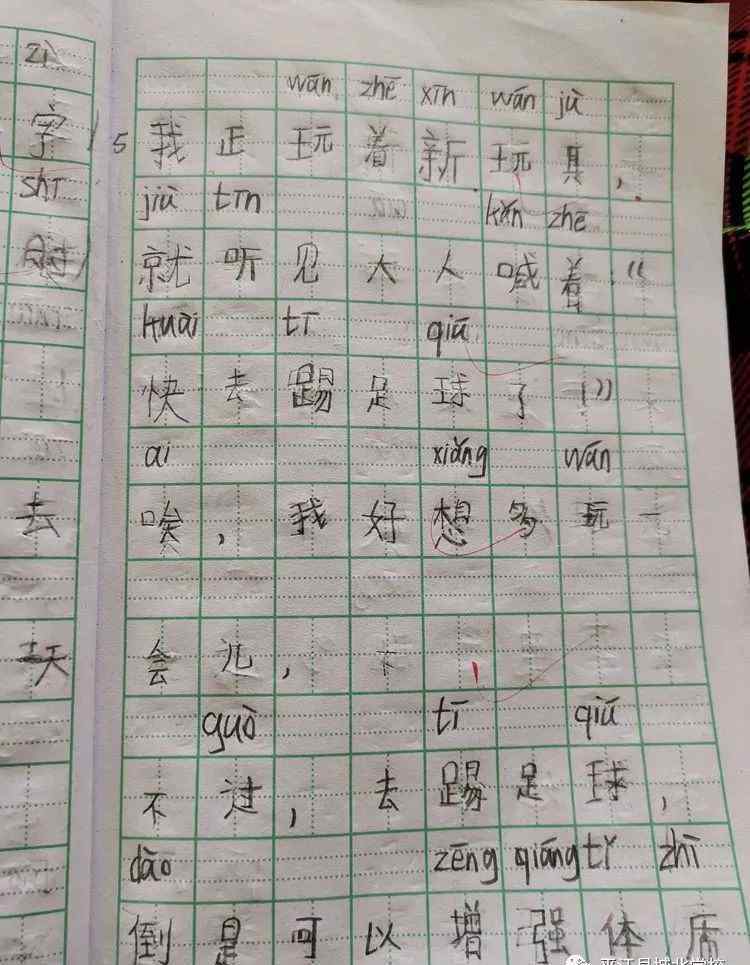 zì
字
shī
去
天
wán zhē xīn wán jù
5 我正玩着新玩具，
jiù tīn kǎn zhē
就听见大人喊着:“
kuài tī qiū
快去踢足球了!”
ai xiǎng wán
唉，我好想多玩一
会儿，
guò tī qiū
不过，去踢足球，
dào zēng qiáng tǐ zhī
倒是可以增强体质
平江县城北学校